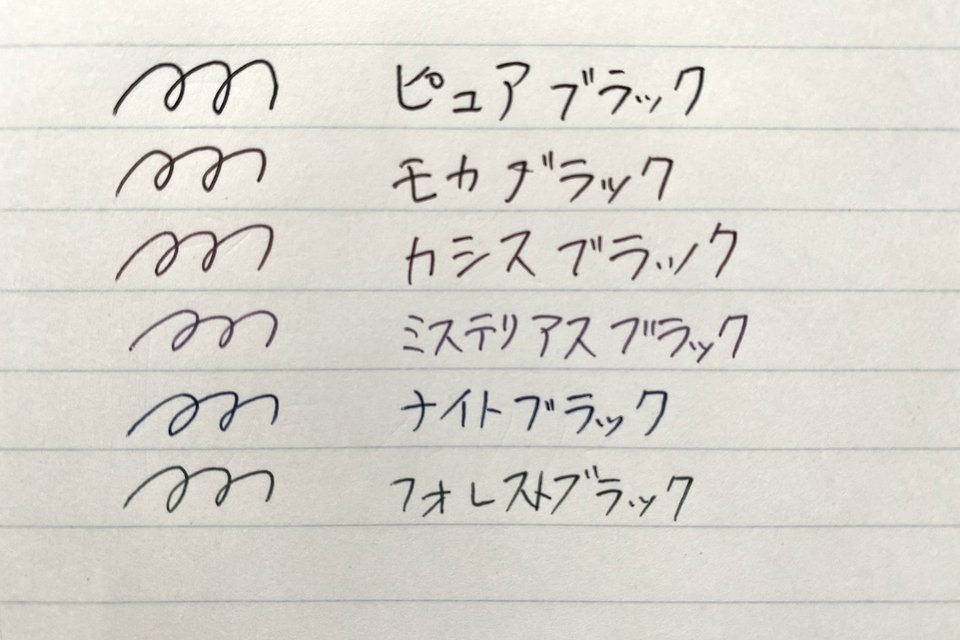 ピュアブラック
モカブラック
カシスブラック
ミステリアスブラック
ナイトブラック
フォレストブラック